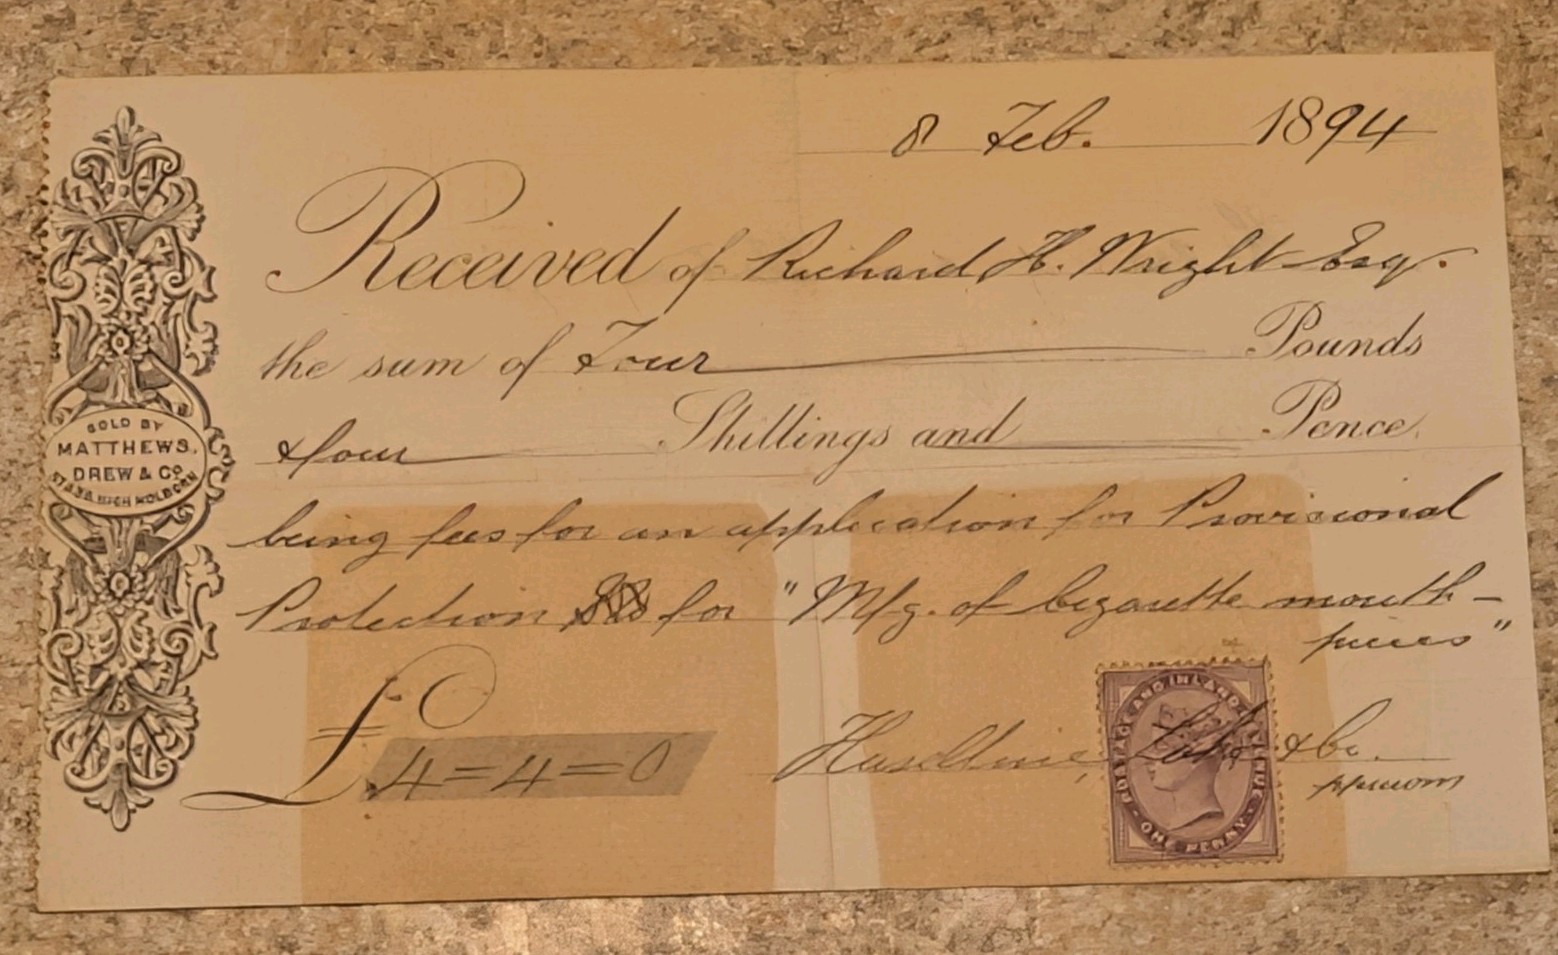 8 Feb. 1894
Received of Richard H. Wright Esq.
the sum of Four Pounds
& four Shillings and Pence
SOLD BY
MATTHEWS,
DREW & CO
37 & 38 HIGH HOLBORN
being fees for an application for Provisional
Protection for "Mfg. of Cigarette mouth-
pieces"
£ 4=4=0
Haseltine, Lake & Co.
POSTAGE AND INLAND REVENUE
ONE PENNY